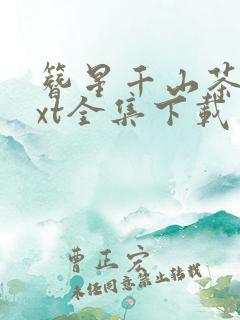 簪星千山茶
xt全集下载
曹正宏
未经同意禁止转载